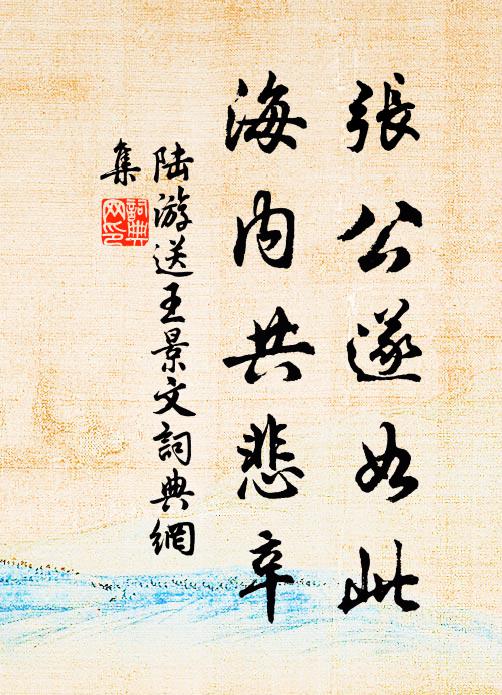 張公遂如此
海內共悲辛
陆游送王景文詞典網
集
詞典
网印